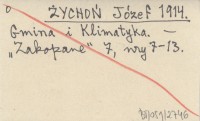 ŻYCHOŃ Józef 1914.
Gmina i Klimatyka. —
"Zakopane" 7, nry 7-13.